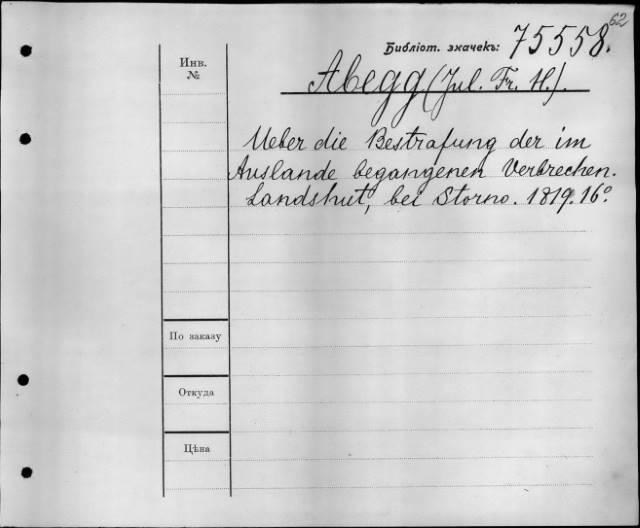 62
Библіот. значекъ: 75558.
Инв.
№
Abegg (Jul. Fr. H.).
Ueber die Bestrafung der im
Auslande begangenen Verbrechen.
Landshut, bei Storno. 1819. 16°.
По заказу
Откуда
Цѣна